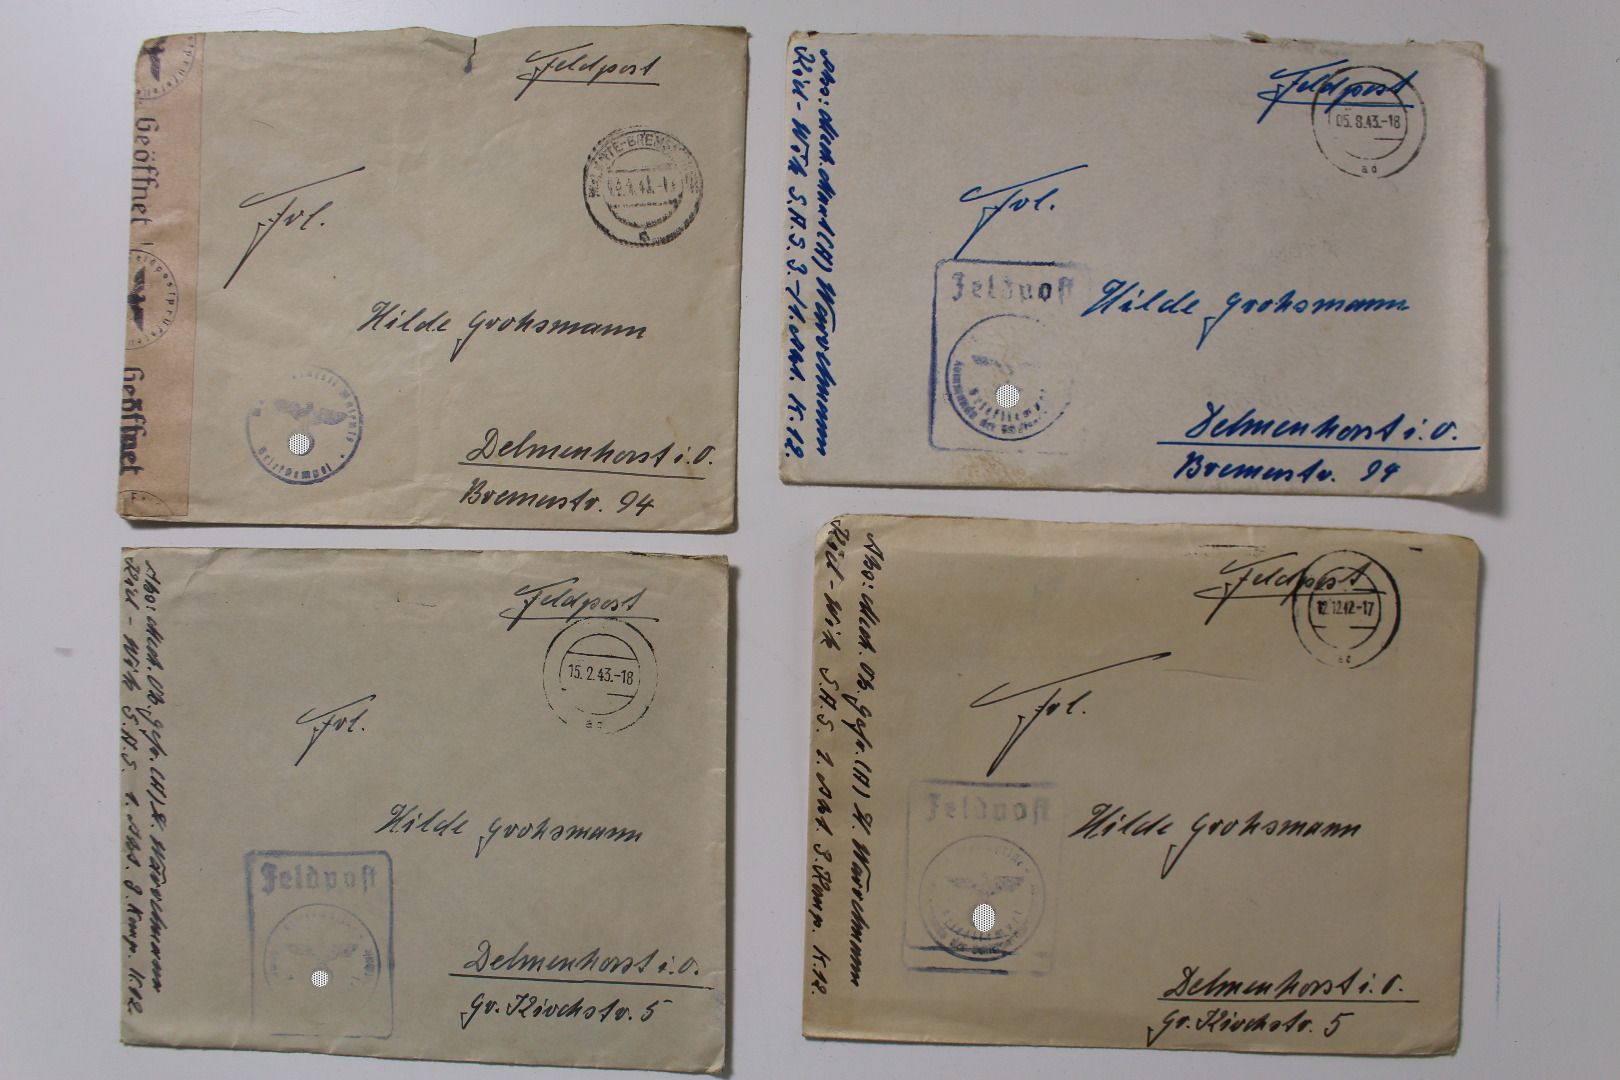 Feldpost
Geöffnet
Geöffnet
Feldpostprüfstelle
Frl.
Hilde Grohsmann
Delmenhorst i. O.
Bremerstr. 94
Briefstempel
Feldpost
05.8.43.-18
Frl.
Feldpost
Hilde Grohsmann
Delmenhorst i. O.
Bremerstr. 94
Briefstempel
Kommando der
Kiel - Wik S.A.S. 3.
K. 12.
Feldpost
15.2.43.-18
Frl.
Hilde Grohsmann
Feldpost
Delmenhorst i. O.
Gr. Kirchstr. 5
Abs: Mech. Ob. Gefr. (A)
Kiel - Wik S.A.S. 1. Abt. 3. Komp. K. 12.
Feldpost
12.12.42-17
Frl.
Feldpost
Hilde Grohsmann
Delmenhorst i. O.
Gr. Kirchstr. 5
Briefstempel
Abs: Mech. Ob. Gefr. (A)
Kiel - Wik S.A.S. 1. Abt. 3. Komp. K. 12.